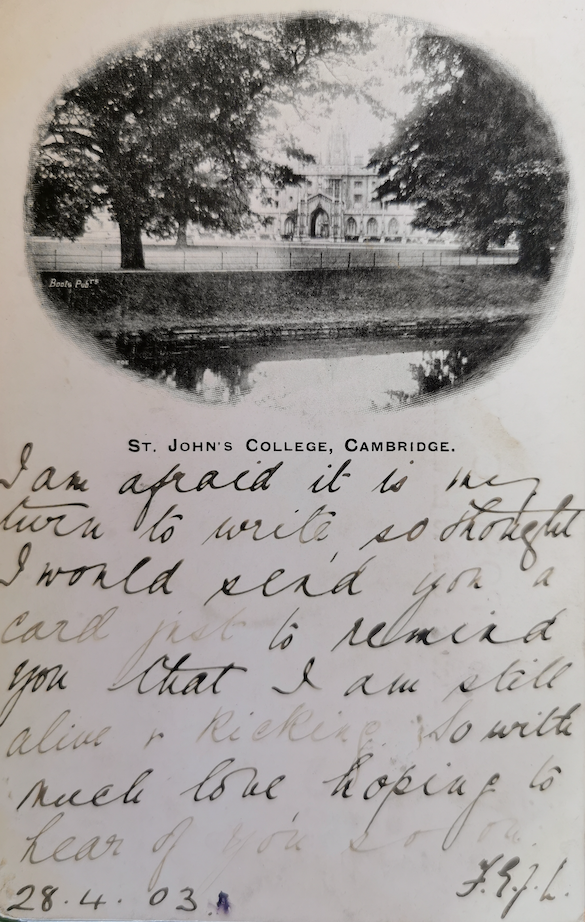 Boots Pubrs
ST. JOHN'S COLLEGE, CAMBRIDGE.
I am afraid it is my
turn to write, so thought
I would send you a
card just to remind
you that I am still
alive & kicking. So with
much love hoping to
hear of you soon.
28.4.03. F.E.J.L.